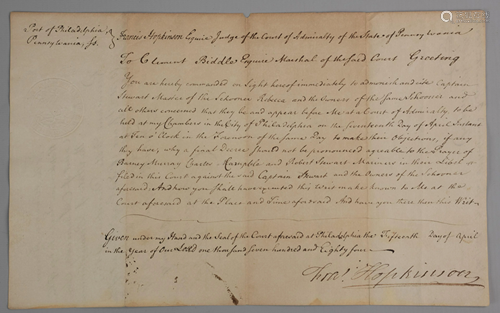 Port of Philadelphia
Pennsylvania, Ss.
Francis Hopkinson Esquire Judge of the Court of Admiralty of the State of Pennsylvania
To Clement Biddle Esquire Marshal of the said Court Greeting
You are hereby commanded in Sight hereof immediately to admonish and cite Captain
Stewart Master of the Schooner Rebecca and the Owners of the same Schooner and
all others concerned that they be and appear before Me at a Court of Admiralty to be
held at my Chambers in the City of Philadelphia on the Seventeenth Day of April Instant
at Ten o'Clock in the Forenoon of the same Day to make their Objections, if any
they have, why a final Decree should not be pronounced agreeable to the Prayer of
Barney Murray Charles and Robert Stewart Mariners in their Libel
filed in this Court against the said Captain Stewart and the Owners of the Schooner
aforesaid And how you shall have executed this Writ make known to Me at the
Court aforesaid at the Place and Time aforesaid And have you there then this Writ
Given under my Hand and the Seal of the Court aforesaid at Philadelphia the Day of April
in the Year of Our Lord one thousand seven hundred and Eighty four
Fra.s Hopkinson